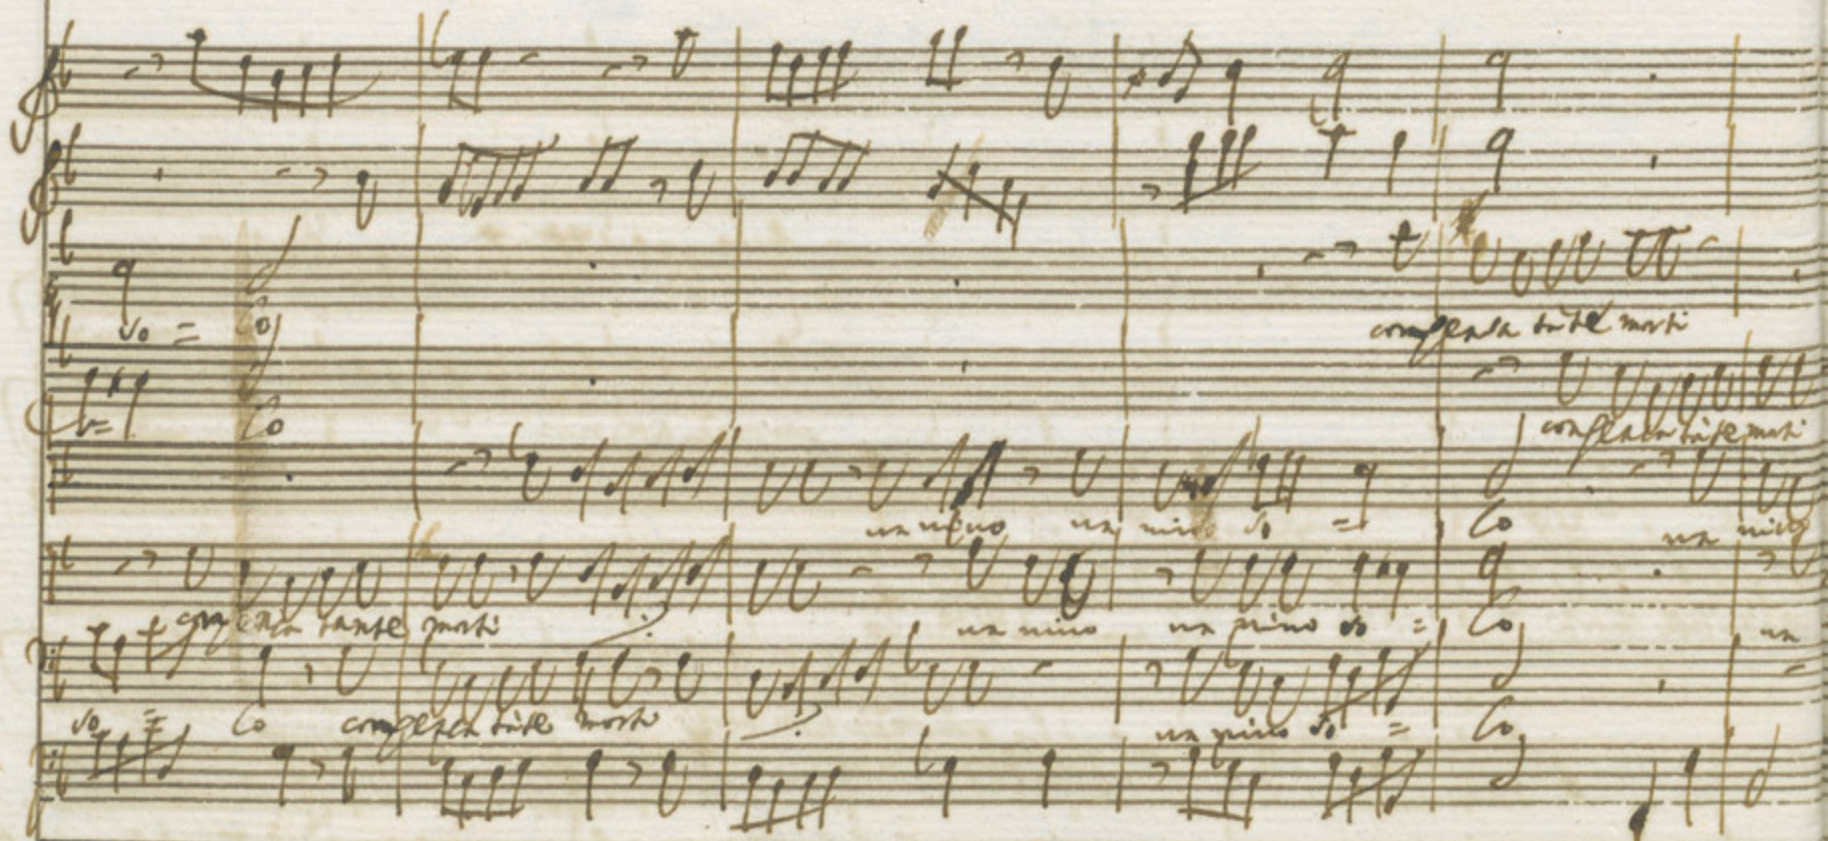 so = lo compensa tãte morti
= lo compensa tãte morti
un vivo un vivo so = lo un vivo
compensa tante morti un vivo un vivo so = lo un
so = lo compensa tãte morti un vivo so = lo